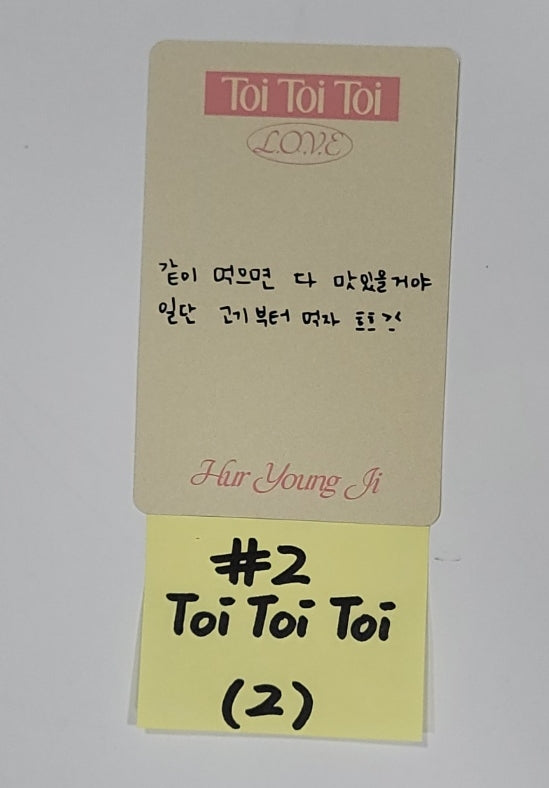 Toi Toi Toi
L.O.V.E
같이 먹으면 다 맛있을거야
일단 고기부터 먹자
Hur Young Ji
#2
Toi Toi Toi
(2)